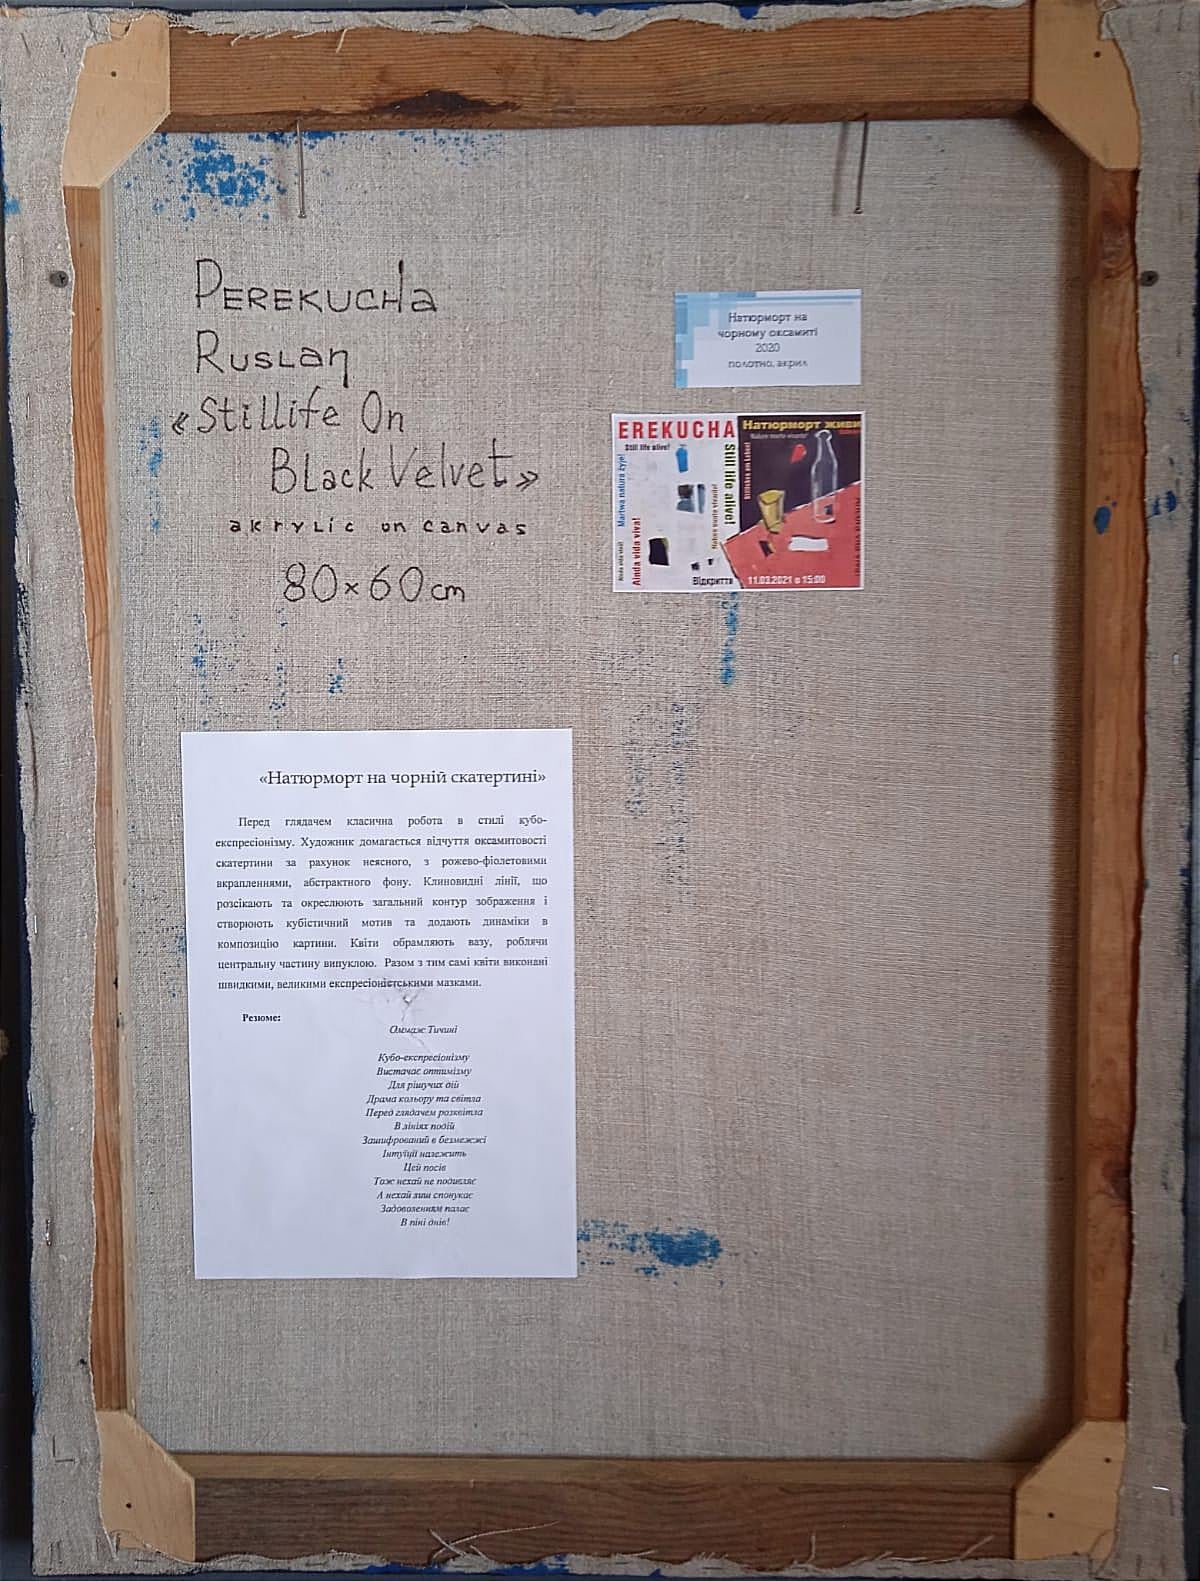 PEREKUCHa
RUSLan
«Stillife On
Black Velvet»
akrylic on canvas
80×60 cm
Натюрморт на
чорному оксамиті
2020
полотно, акрил
EREKUCHA
Still life alive!
Martwa natura żyje!
Ainda vida viva!
Still life alive!
Відкриття
Натюрморт живи
11.03.2021 о 15:00
«Натюрморт на чорній скатертині»
Перед глядачем класична робота в стилі кубо-
експресіонізму. Художник домагається відчуття оксамитовості
скатертини за рахунок неясного, з рожево-фіолетовими
вкрапленнями, абстрактного фону. Клиновидні лінії, що
розсікають та окреслюють загальний контур зображення і
створюють кубістичний мотив та додають динаміки в
композицію картини. Квіти обрамляють вазу, роблячи
центральну частину випуклою. Разом з тим самі квіти виконані
швидкими, великими експресіоністськими мазками.
Резюме:
Оммаж Тичині
Кубо-експресіонізму
Вистачає оптимізму
Для рішучих дій
Драма кольору та світла
Перед глядачем розквітла
В лініях подій
Зашифрований в безмежжі
Інтуїції належить
Цей посів
Тож нехай не подивляє
А нехай лиш спонукає
Задоволенням палає
В піні днів!